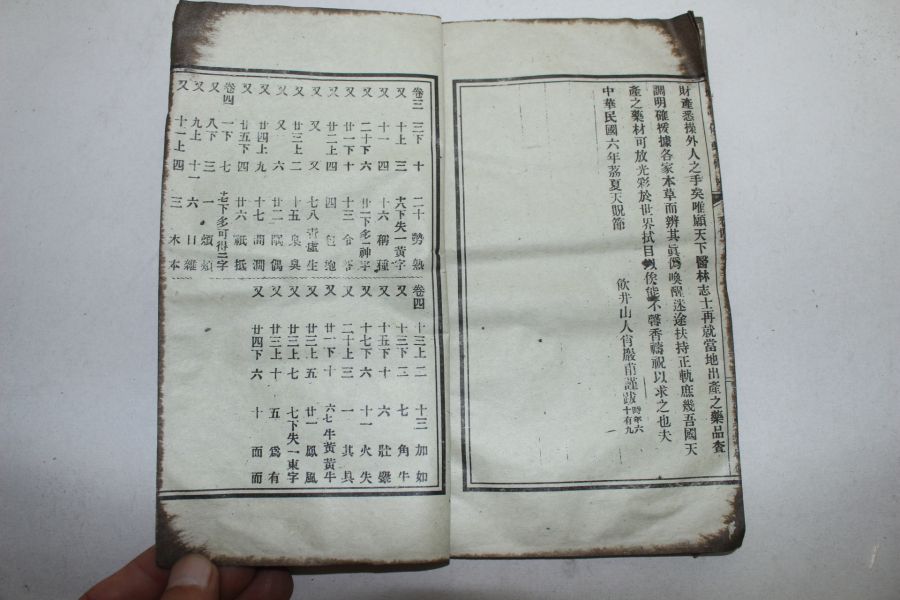 財產悉操外人之手矣唯願天下醫林志士再就當地出產之藥品查
調明確援據各家本草而辨其眞僞喚醒迷途扶持正軌庶幾吾國天
產之藥材可放光彩於世界拭目俟能不馨香禱祝以求之也夫
中華民國六年荔夏天貺節
飲井山人肖巖甫謹跋時年六十有九
卷三 三下 十 二十 勢 熱
又 十上 三 十六下失一黃字
又 十一 四 十六 稱 種
又 二十下 六 廿二下多一神字
又 廿一下 十 十三 令
又 廿二上 四 四 炮
又 廿三上 二 七八 生
又 又 又 十五 臭
又 又 六 廿二 隅 偶
又 廿四上 九 十七 間 澗
又 廿五下 四 廿六 祇 抵
卷四 一下 七 下多可得二字
又 八下 三 一 類
又 九上 十一 六 日 雜
又 十一上 四 三 木 本
卷四 十三上 二 十三 加 如
又 十三下 二 七 角 牛
又 十五下 十 六 壯
又 十七下 六 十一 火 失
又 二十上 三 一 其 具
又 廿一下 十 六七 牛黃黃牛
又 廿三上 五 廿一 鳳 風
又 廿三上 七 七下失一東字
又 廿三上 十 五 爲 有
又 廿四下 六 十 面 而